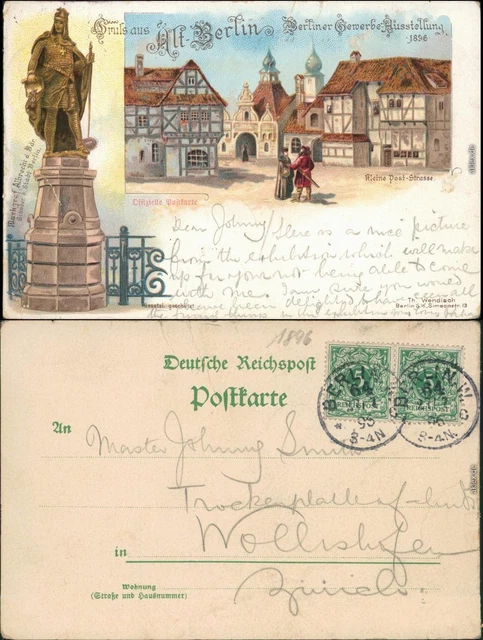 Gruss aus
Alt-Berlin
Berliner Gewerbe-Ausstellung
1896
Markgraf Albrecht d. Bär
Kleine Post-Strasse.
Offizielle Postkarte
Dear Johnny/ Here is a nice picture
from the exhibition which will make
up for your not being able to come
with me. I am sure you would
have been delighted to have seen all
the
Gesetzl. geschützt
Th. Wendisch
Berlin S.W. Simeonstr. 13
1896
Deutsche Reichspost
Postkarte
5
REICHSPOST
5
REICHSPOST
BERLIN
8-4N
BERLIN N.W.
8-4N.
An
Master Johnny Smith
Trockenplattefabrik
in Wollishofen
Wohnung
(Straße und Hausnummer)
Zürich.